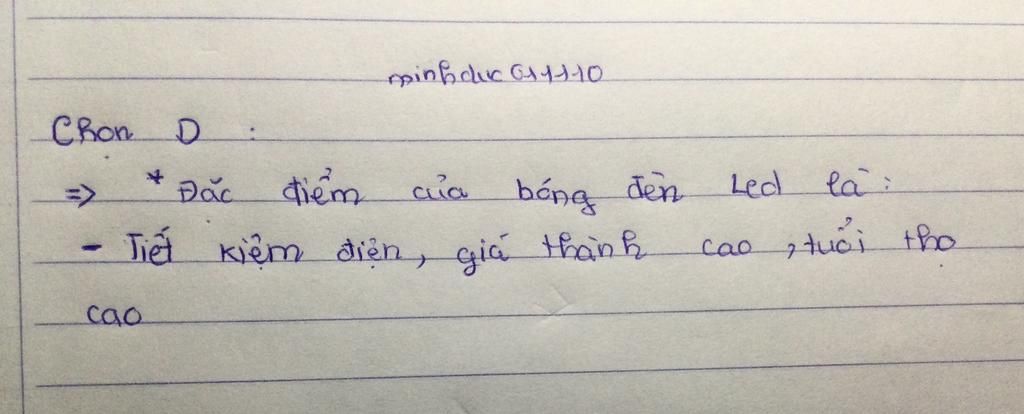 minhduc011110
Chon D :
=> * Đăc điểm của bóng đèn Led là :
- Tiết kiệm điện, giá thành cao , tuổi tho
cao